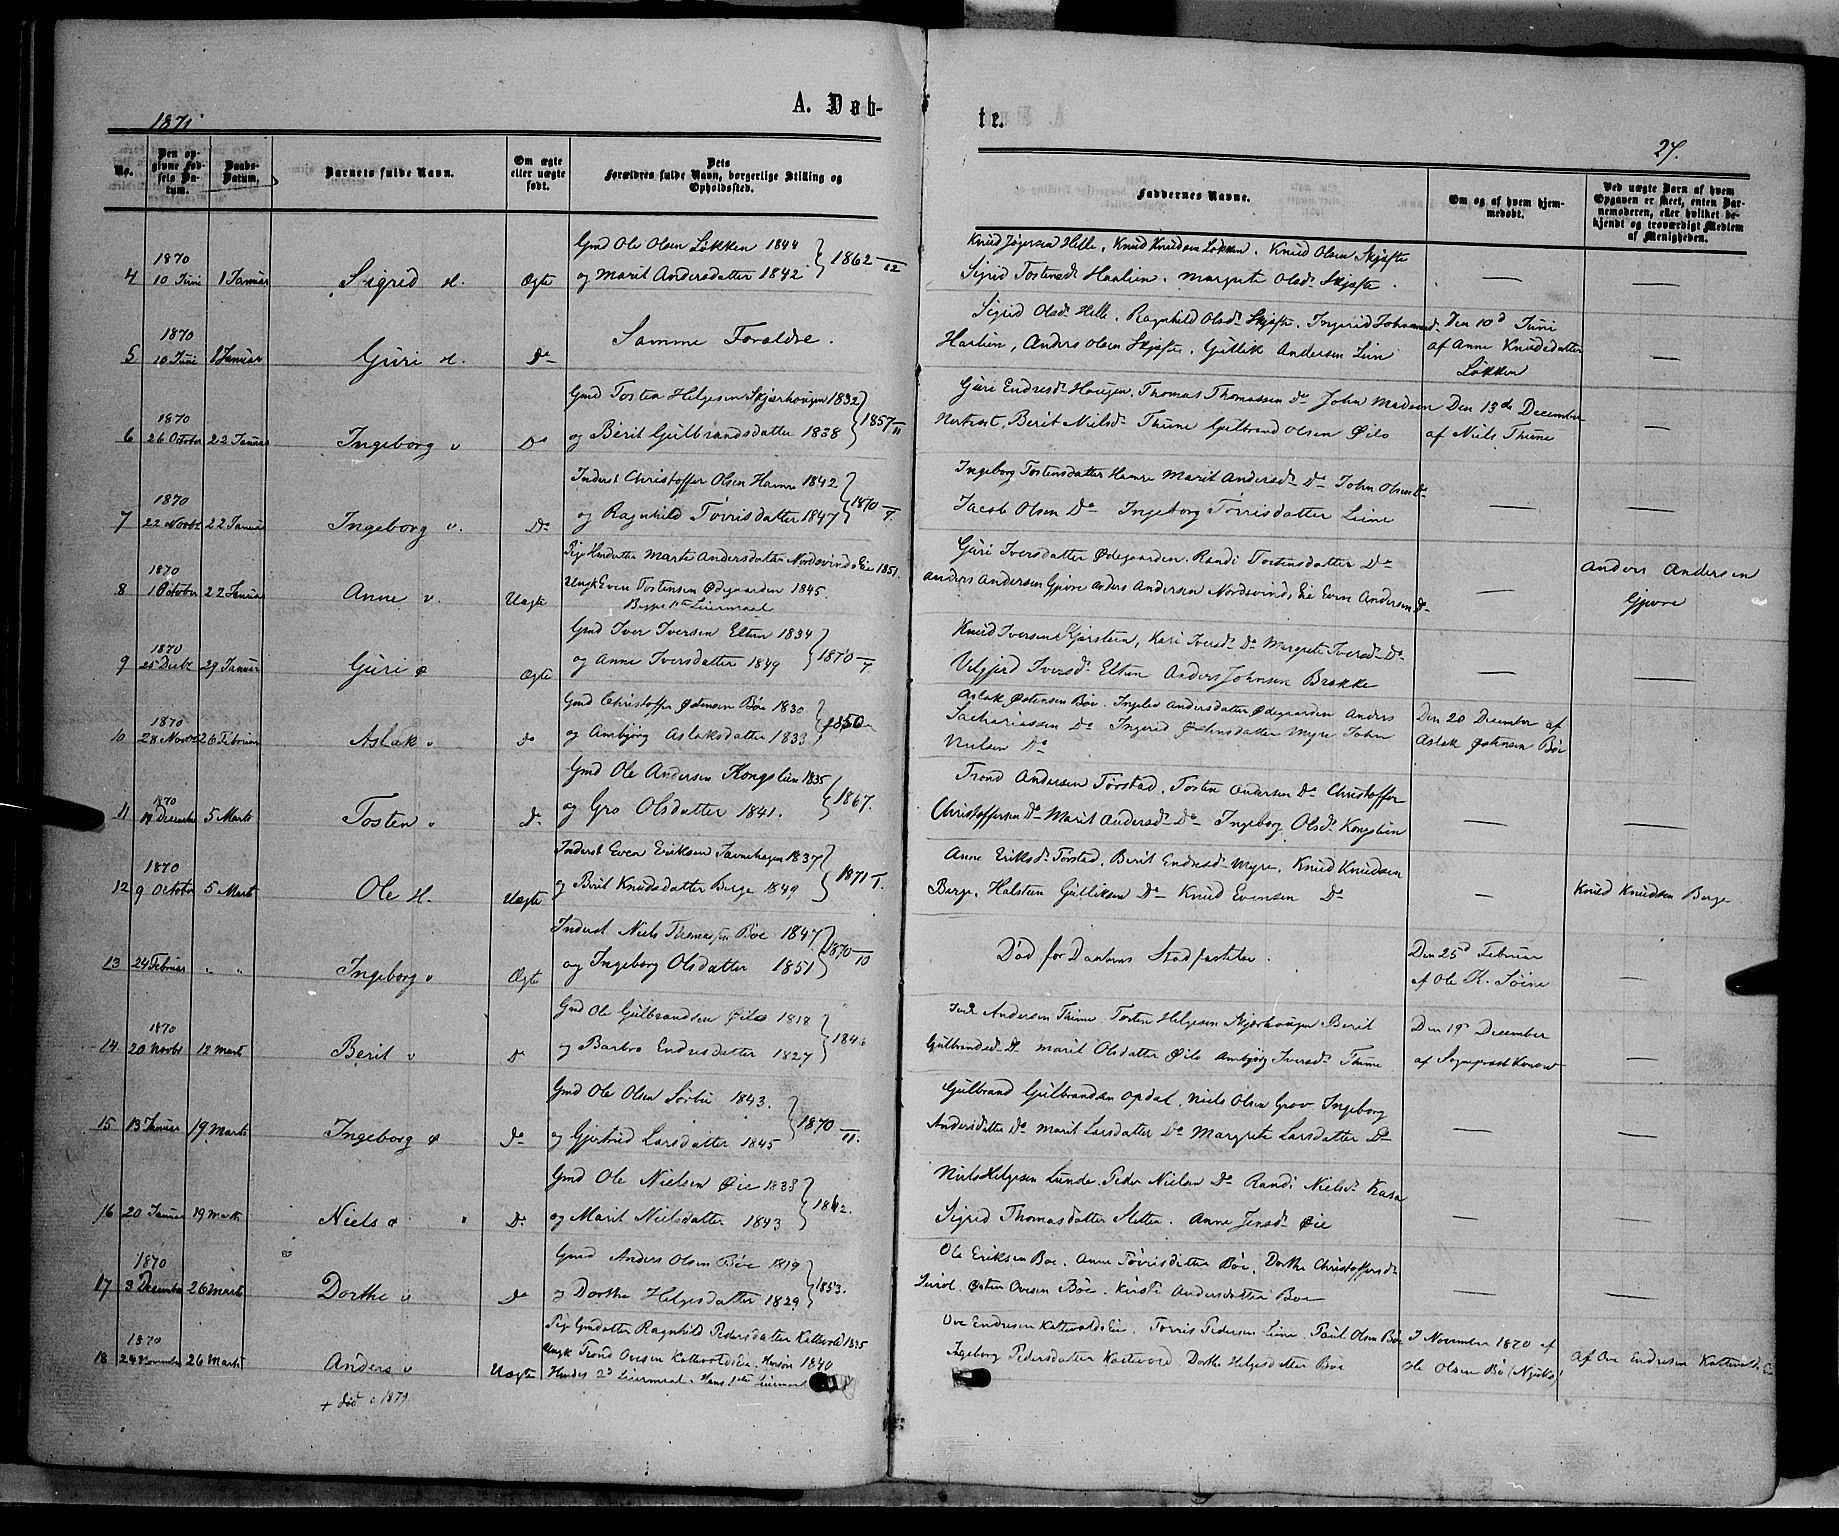 1871
A. Døb-
te.
27.
No.
Den opgivne Fødsels Datum.
Daabs-Datum.
Barnets fulde Navn.
Om ægte eller uægte født.
Dets Forældres fulde Navn, borgerlige Stilling og Opholdssted.
Faddernes Navne.
Om og af hvem hjemmedøbt.
Ved uægte Børn af hvem Opgaven er skeet, enten Barnemoderen, eller hvilket bekjendt og troværdigt Medlem af Menigheden.
1870
4 10 Juni 1 Januar Sigrid Ægte
Gmd Ole Olsen Løkken 1844
og Marit Andersdatter 1842 1862 12
Knud Knudsen Løkken. Knud Olsen Skjefte
Sigrid Tostensd. Haalien. Margrete Olsd. Skjefte.
1870
5 10 Juni 1 Januar Guri Do
Samme Forældre.
Sigrid Olsd. Helle. Ragnhild Olsd. Skjefte.
Haalien, Anders Olsen Skjefte. Gullik Andersen Lien
Den 10d Juni
af Anne Knudsdatter
Løkken
1870
6 26 October 22 Januar Ingeborg Do
Gmd Tosten Helgesen Skjørhougen 1832
og Berit Gulbrandsdatter 1838 1857 11
Guri Endresd. Hougen, Thomas Thomassen Do John Madsen
Berit Nielsd. Thune Gulbrand Olsen Øilo
Den 13de December
af Niels Thune
1870
7 22 Novbr 22 Januar Ingeborg Do
Inderst Christoffer Olsen Hamre 1842
og Ragnhild Torrisdatter 1847 1870
Ingeborg Tostensdatter Hamre Marit Andersd. Do John Olsen Do
Jacob Olsen Do Ingeborg Torrisdatter Leine
1870
8 1 October 22 Januar Anne Uægte
Pige Marte Andersdatter Nordsvinds Eie 1851.
Ungk Even Tostensen Ødegaarden 1845.
Begges 1te Leiermaal
Guri Iversdatter Ødegaarden. Randi Tostensdatter Do
Anders Andersen Gjøvre Anders Andersen Nordsvinds Eie Even Andersen Do
Anders Andersen
Gjøvre
1870
9 25 Decbr 29 Januar Guri Ægte
Gmd Iver Iversen Eltun 1834
og Anne Iversdatter 1849 1870
Knud Iversen, Kari Iversd. Do Margrete Iversd. Do
Iversd. Eltun Anders Johnsen Brække
1870
10 28 Novbr 26 Februar Aslak Do
Gmd Christoffer Østensen Bøe 1830
og Ambjørg Aslaksdatter 1833 1850
Aslak Østensen Bøe. Andersdatter Ødegaarden Anders
Sachariassen Do Ingerid Østensdatter Myre John
Nielsen Do
Den 20 December af
Aslak Østensen Bøe
1870
11 December 5 Marts Tosten Do
Gmd Ole Andersen Kongslien 1835
og Gro Olsdatter 1841. 1867.
Trond Andersen Torstad, Tosten Andersen Do Christoffer
Christoffersen Do Marit Andersd. Do Ingeborg Olsd. Kongslien
1870
12 9 October 5 Marts Ole Uægte
Inderst Even Eriksen 1837
og Berit Knudsdatter Berge 1849 1871 I.
Anne Eriksd. Torstad, Berit Endresd. Myre, Knud Knudsen
Berge, Halsten Gulliksen Do Knud Evensen Do
Knud Knudsen Berge
13 24 Februar " " Ingeborg Ægte
Inderst Niels Bøe 1847
og Ingeborg Olsdatter 1851 1870 10
Død før Daabens Stadfæstelse.
Den 25d Februar
af Ole K. Søine
1870
14 20 Novbr 12 Marts Berit Do
Gmd Ole Gulbrandsen Øilo 1818
og Barbro Endresdatter 1827 1846
Andersen Thune. Tosten Helgesen Skjørhougen Berit
Gulbrandsd. Do Marit Olsdatter Øilo Ambjørg Iversd. Thune
Den 19 December
af Sogneprest Konow
15 13 Januar 19 Marts Ingeborg Do
Gmd Ole Olsen Sørbu 1843.
og Gjertrud Larsdatter 1845 1870 11.
Gulbrand Gulbrandsen Opdal, Niels Olsen Grov Ingeborg
Andersdatter Do Marit Larsdatter Do Margrete Larsdatter Do
16 20 Januar 19 Marts Niels Do
Gmd Ole Nielsen Øie 1838
og Marit Nielsdatter 1843 1862.
Niels Helgesen Lunde. Peder Nielsen Do Randi Nielsd. Kasa
Sigrid Thomasdatter Sletten. Anne Jensd. Øie
1870
17 3 December 26 Marts Dorthe Do
Gmd Anders Olsen Bøe 1819
og Dorthe Helgesdatter 1829 1853.
Ole Eriksen Bøe. Anne Torrisdatter Bøe, Dorthe Christoffersd.
Østen Ovesen Bøe. Kirsti Andersdatter Bøe
1870
18 November 26 Marts Anders Uægte
Pige Gmdatter Ragnhild Pedersdatter Kattevold 1835
Ungk Trond Ovesen Kattevolds Eie. 1840
Hendes 2d Leiermaal. Hans 1ste Leiermaal
Ove Endresen Kattevolds Eie. Torris Pedersen Leine. Paul Olsen Bøe
Ingeborg Pedersdatter Kattevold Dorthe Helgesdatter Bøe
I November 1870 af
Ole Olsen Bø
Af Ove Endresen Kattevolds Eie
+ død 1879